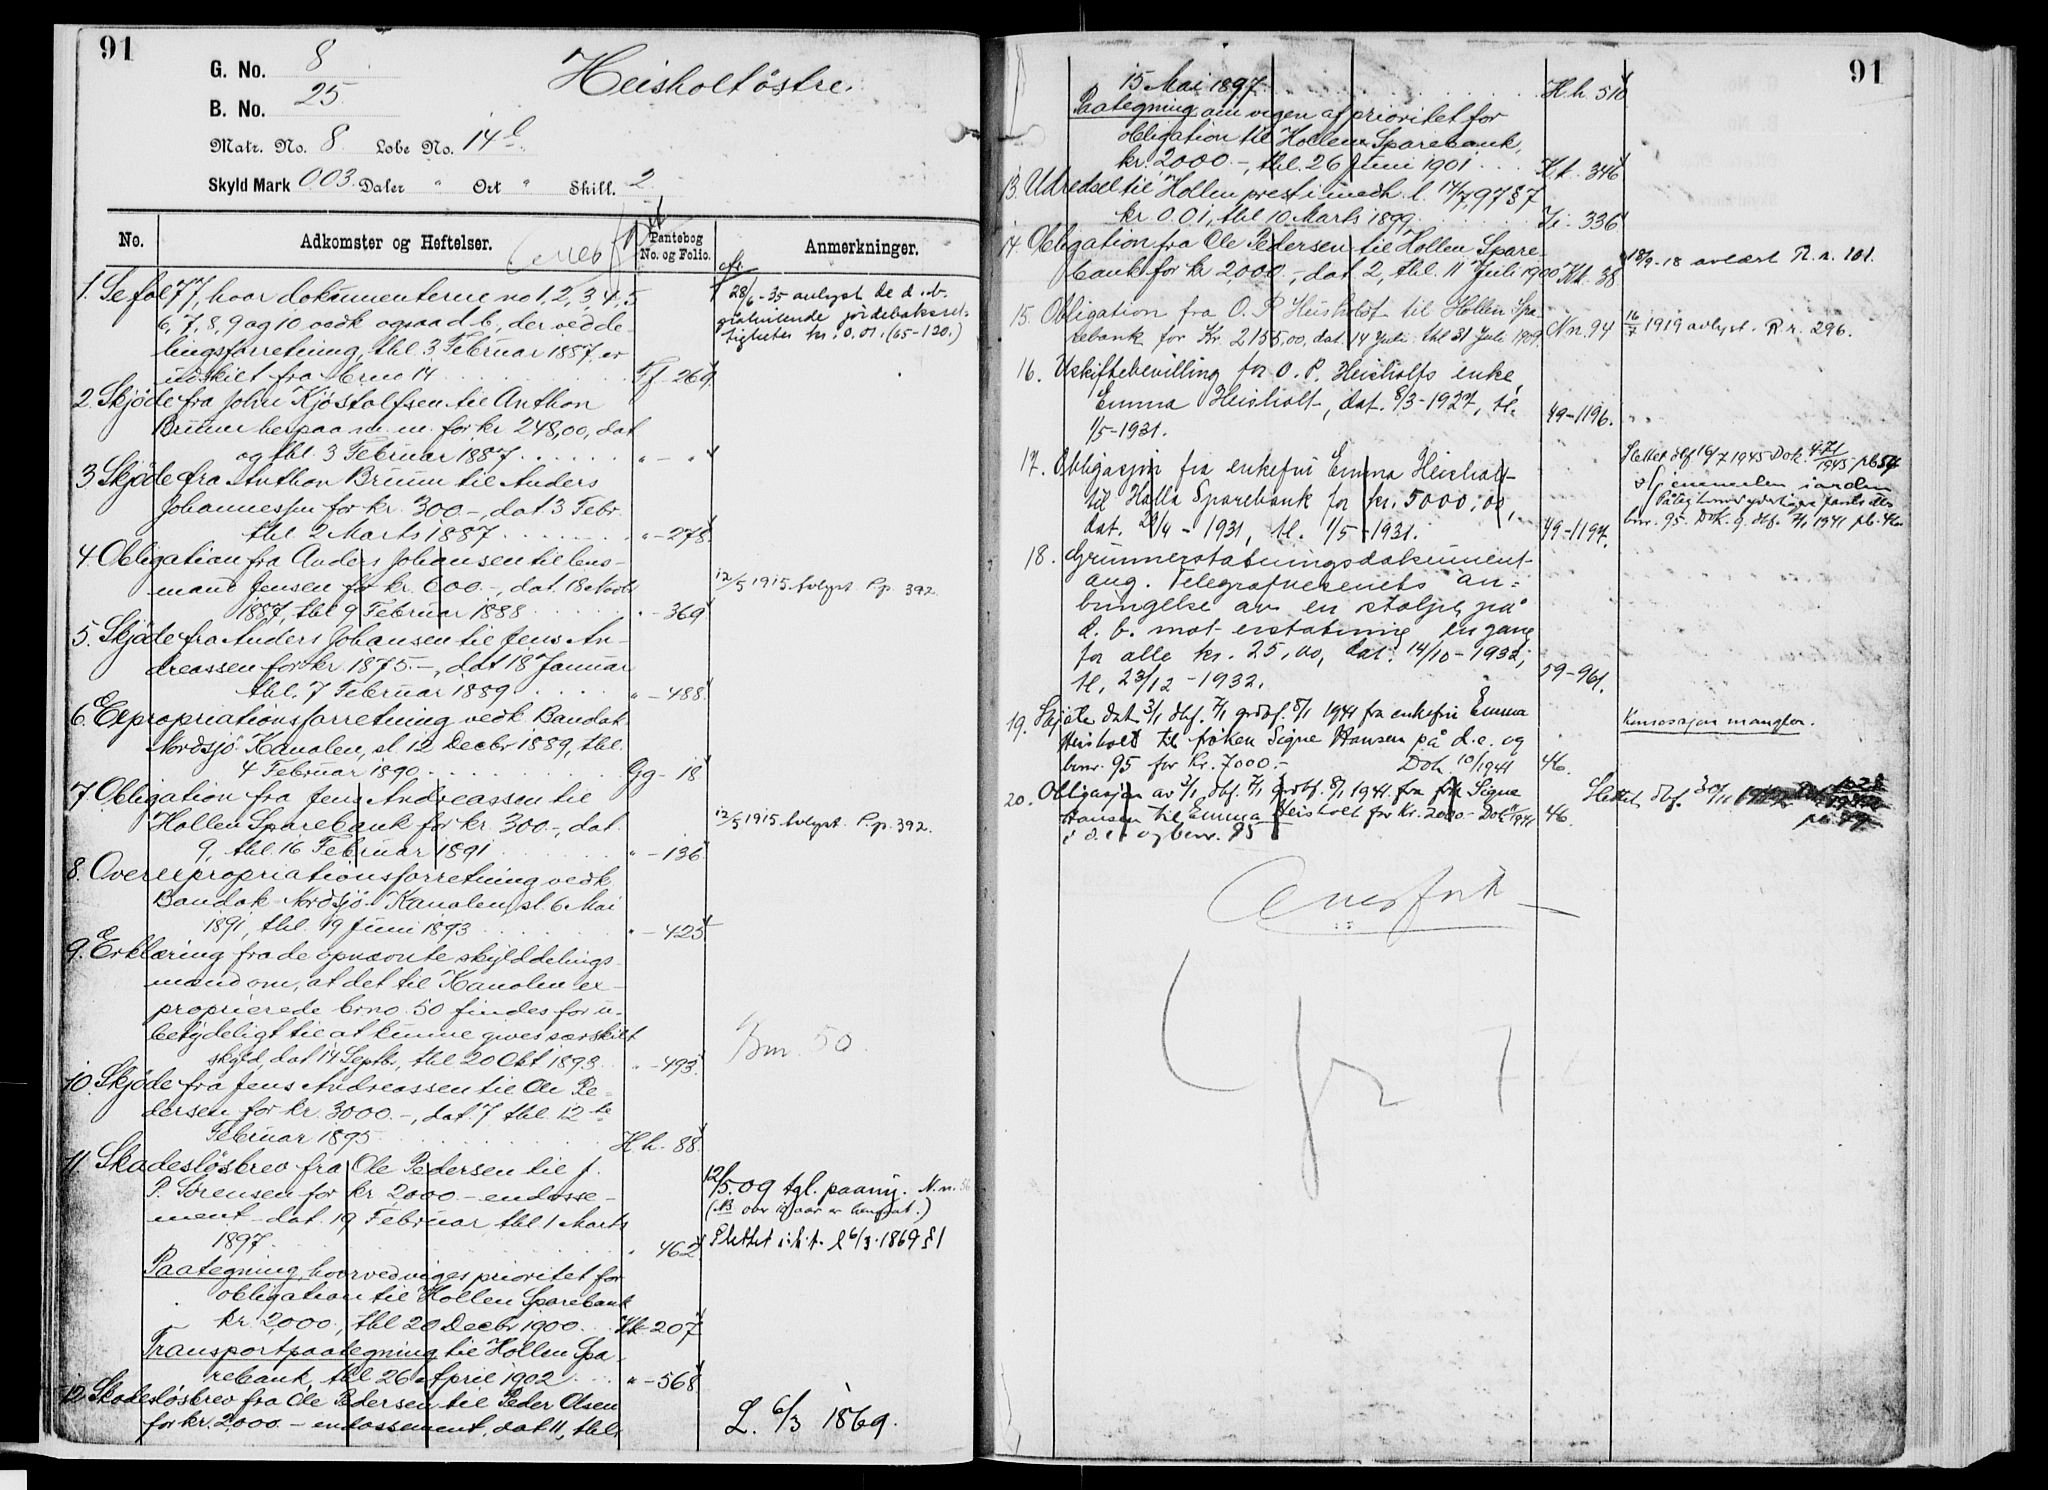 91
G. No. 8
Heisholt østre.
B. No. 25
Matr. No. 8 Løbe No. 14
Skyld Mark 0.03 Daler " Ort " Skill. 2
No. Adkomster og Heftelser. Pantebog No. og Folio. Anmerkninger.
Overført
1. Se fol. 77, hvor dokumenterne no 1, 2, 3, 4, 5
6, 7, 8, 9 og 10 vedk ogsaa d. b., der ved de-
lingsforretning, thl. 3 Februar 1887, er
udskilt fra brno 14 Ff - 269
28/6-35 avlyst de d. b.
påhvilende jordeboksret-
tigheter kr. 0.01. (65-120.)
2. Skjøde fra John Kjøstolfsen til Anthon
Bruun herpaa m. m. for kr. 248,00, dat
og thl. 3 Februar 1887 " - "
3. Skjøde fra Anthon Bruun til Anders
Johannessen for kr. 300.-, dat 3 Febr.
thl. 2 Marts 1887 " - 278.
4. Obligation fra Anders Johansen til lens-
mand Jensen for kr. 600.-, dat. 18 Novbr
1887, thl 9 Februar 1888 " - 369
12/5 1915 Avlyst P.p. 392.
5. Skjøde fra Anders Johansen til Jens An-
dreassen for kr 1875.-, dat 18 Januar
thl. 7 Februar 1889 " - 488.
6. Expropriationsforretning vedk Bandak
Nordsjø Kanalen, sl. 12 Decbr 1889, thl.
4 Februar 1890 Gg - 18
7. Obligation fra Jens Andreassen til
Hollen Sparebank for kr. 300.-, dat.
9, thl. 16 Februar 1891 " - 136.
12/5 1915 Avlyst P.p. 392.
8. Overexpropriationsforretning vedk
Bandak - Nordsjø - Kanalen, sl. 6 Mai
1891, thl. 19 Juni 1893 " - 425.
9. Erklæring fra de opnævnte skylddelings-
mænd om, at det til Kanalen ex-
proprierede brno. 50 findes for u-
betydeligt til at kunne gives særskilt
skyld, dat 14 Septb., thl 20 Okt 1893 " - 493.
Bnr. 50
10. Skjøde fra Jens Andreassen til Ole Pe-
dersen for kr. 3000.-, dat. 7 thl. 12te
Februar 1895 Hh - 88.
11. Skadesløsbrev fra Ole Pedersen til J.
P. Sørensen for kr 2000.- endosse-
ment - dat. 19 Februar, thl 1 Marts
1897 " 462
12/5.09 tgl. paany. N.n. 56
(NB over 10 aar er henstaat.)
Slettet i. h. t. l 6/3.1869 § 1
Paategning, hvorved viges prioritet for
obligation til Hollen Sparebank
kr. 2000., thl 20 Decbr 1900 Kk - 207
Transportpaategning til Hollen Spa-
rebank, thl 26 April 1902 " - 568
12. Skadesløsbrev fra Ole Pedersen til Peder Olsen
for kr. 2000.- endossement, dat 11, thl.
L. 6/3 1869.
91
15 Mai 1897 Hh 510
Paategning om vigen af prioritet for
obligation til Hollen Sparebank,
kr. 2000.-, thl. 26 Juni 1901 Kk. 346
13. Udredsel til Hollen prest i medh. l. 14/7 97 § 7
kr 0.01, thl 10 Marts 1899 Ii. 336
14. Obligation fra Ole Pedersen til Hollen Spare-
bank for kr 2000.-, dat 2, thl. 11 Juli 1900 Kk. 38
18/9-18 avlæst R. r. 101.
15. Obligation fra O. P. Heisholt til Hollen Spa-
rebank for Kr. 2155,00, dat. 14 Juli thl 31 Juli 1909. Nn. 94
16/7 1919 avlyst. R r. 296.
16. Uskiftebevilling for O. P. Heisholts enke
Emma Heisholt, dat. 8/3-1927, tl.
1/5-1931. 49-1196.
17. Obligasjon fra enkefru Emma Heisholt
til Holla Sparebank for kr. 5000,00,
dat. 29/4 - 1931, tl. 1/5-1931. 49-1197.
Slettet dbf 16/7 1945 Dok. 471/1945 pb 54
18. Grunnerstatningsdokument
ang. Telegrafvesenets an-
bringelse av en stolpe på
d. b. mot erstatning en gang
for alle kr. 25,00, dat. 14/10-1932,
tl. 23/12 - 1932. 59-961.
19. Skjøte dat. 3/1 dbf. 7/1 grdbf. 8/1 1941 fra enkefru Emma
Heisholt til frøken Signe Hansen på d. e. og
bnr. 95 for kr. 7000.- Dok 10/1941 46.
Konsesjon mangler.
20. Obligasjon av 3/1, dbf. 7/1 grdbf. 8/1 1941 fra frk Signe
Hansen til Emma Heisholt for Kr. 2000.- Dok 11/1941 46.
i d. e. og bnr. 95
Slettet dbf. 30/11
Overført